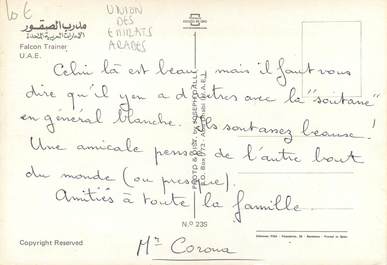 10 €
UNION
DES
EMIRATS
ARABES
مدرب الصقور
الإمارات العربية المتحدة
Falcon Trainer
U.A.E.
Celui là est beau, mais il faut vous
dire qu'il y en a d'autres avec la "soutane"
en général blanche. Ils sont assez beaux!
Une amicale pensée de l'autre bout
du monde (ou presque).
Amitiés à toute la famille.
Mr Corona
PHOTO & DIST. by JOSEPH
P.O. Box 773 - Abu Dhabi (U.A.E.)
N.º 235
Copyright Reserved